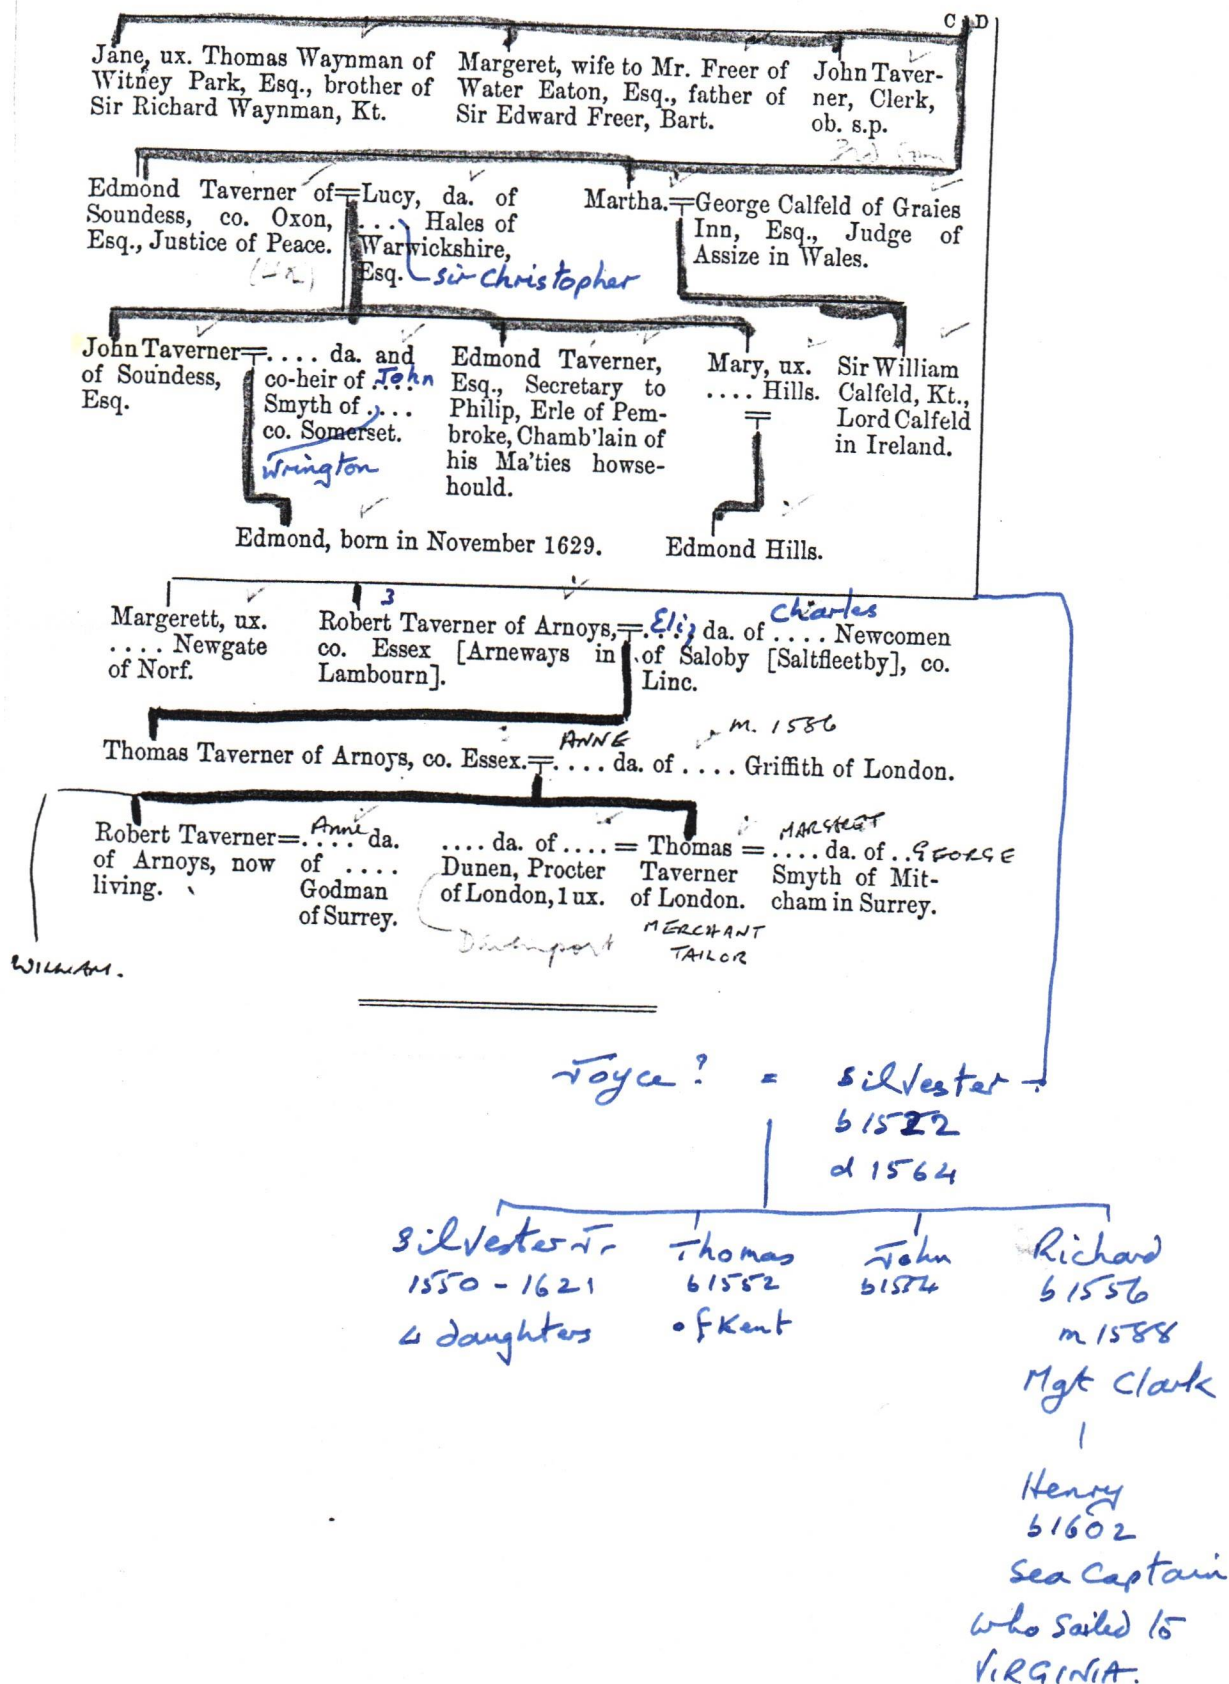 C D
Jane, ux. Thomas Waynman of
Witney Park, Esq., brother of
Sir Richard Waynman, Kt.
Margeret, wife to Mr. Freer of
Water Eaton, Esq., father of
Sir Edward Freer, Bart.
John Taver-
ner, Clerk,
ob. s.p.
3rd Son
Edmond Taverner of
Soundess, co. Oxon,
Esq., Justice of Peace.
=Lucy, da. of
.... Hales of
Warwickshire,
Esq.
Sir Christopher
Martha.=George Calfeld of Graies
Inn, Esq., Judge of
Assize in Wales.
John Taverner=
of Soundess,
Esq.
.... da. and
co-heir of .... John
Smyth of ....
co. Somerset.
Wrington
Edmond Taverner,
Esq., Secretary to
Philip, Erle of Pem-
broke, Chamb'lain of
his Ma'ties howse-
hould.
Mary, ux.
.... Hills.
=
Sir William
Calfeld, Kt.,
Lord Calfeld
in Ireland.
Edmond, born in November 1629.
Edmond Hills.
Margerett, ux.
.... Newgate
of Norf.
3
Robert Taverner of Arnoys,=
co. Essex [Arneways in
Lambourn].
Eliz Charles
.... da. of .... Newcomen
of Saloby [Saltfleetby], co.
Linc.
ANNE m. 1586
Thomas Taverner of Arnoys, co. Essex.=.... da. of .... Griffith of London.
Robert Taverner=
of Arnoys, now
living.
Anne
.... da.
of ....
Godman
of Surrey.
.... da. of .... =
Dunen, Procter
of London, 1 ux.
Davenport
Thomas =
Taverner
of London.
MERCHANT
TAILOR
MARGARET
.... da. of .. GEORGE
Smyth of Mit-
cham in Surrey.
WILLIAM.
Joyce? = Silvester
b 1522
d 1564
Silvester Jr
1550 - 1621
4 daughters
Thomas
b 1552
of Kent
John
b 1554
Richard
b 1556
m 1588
Mgt Clark
Henry
b 1602
Sea Captain
who Sailed to
VIRGINIA.